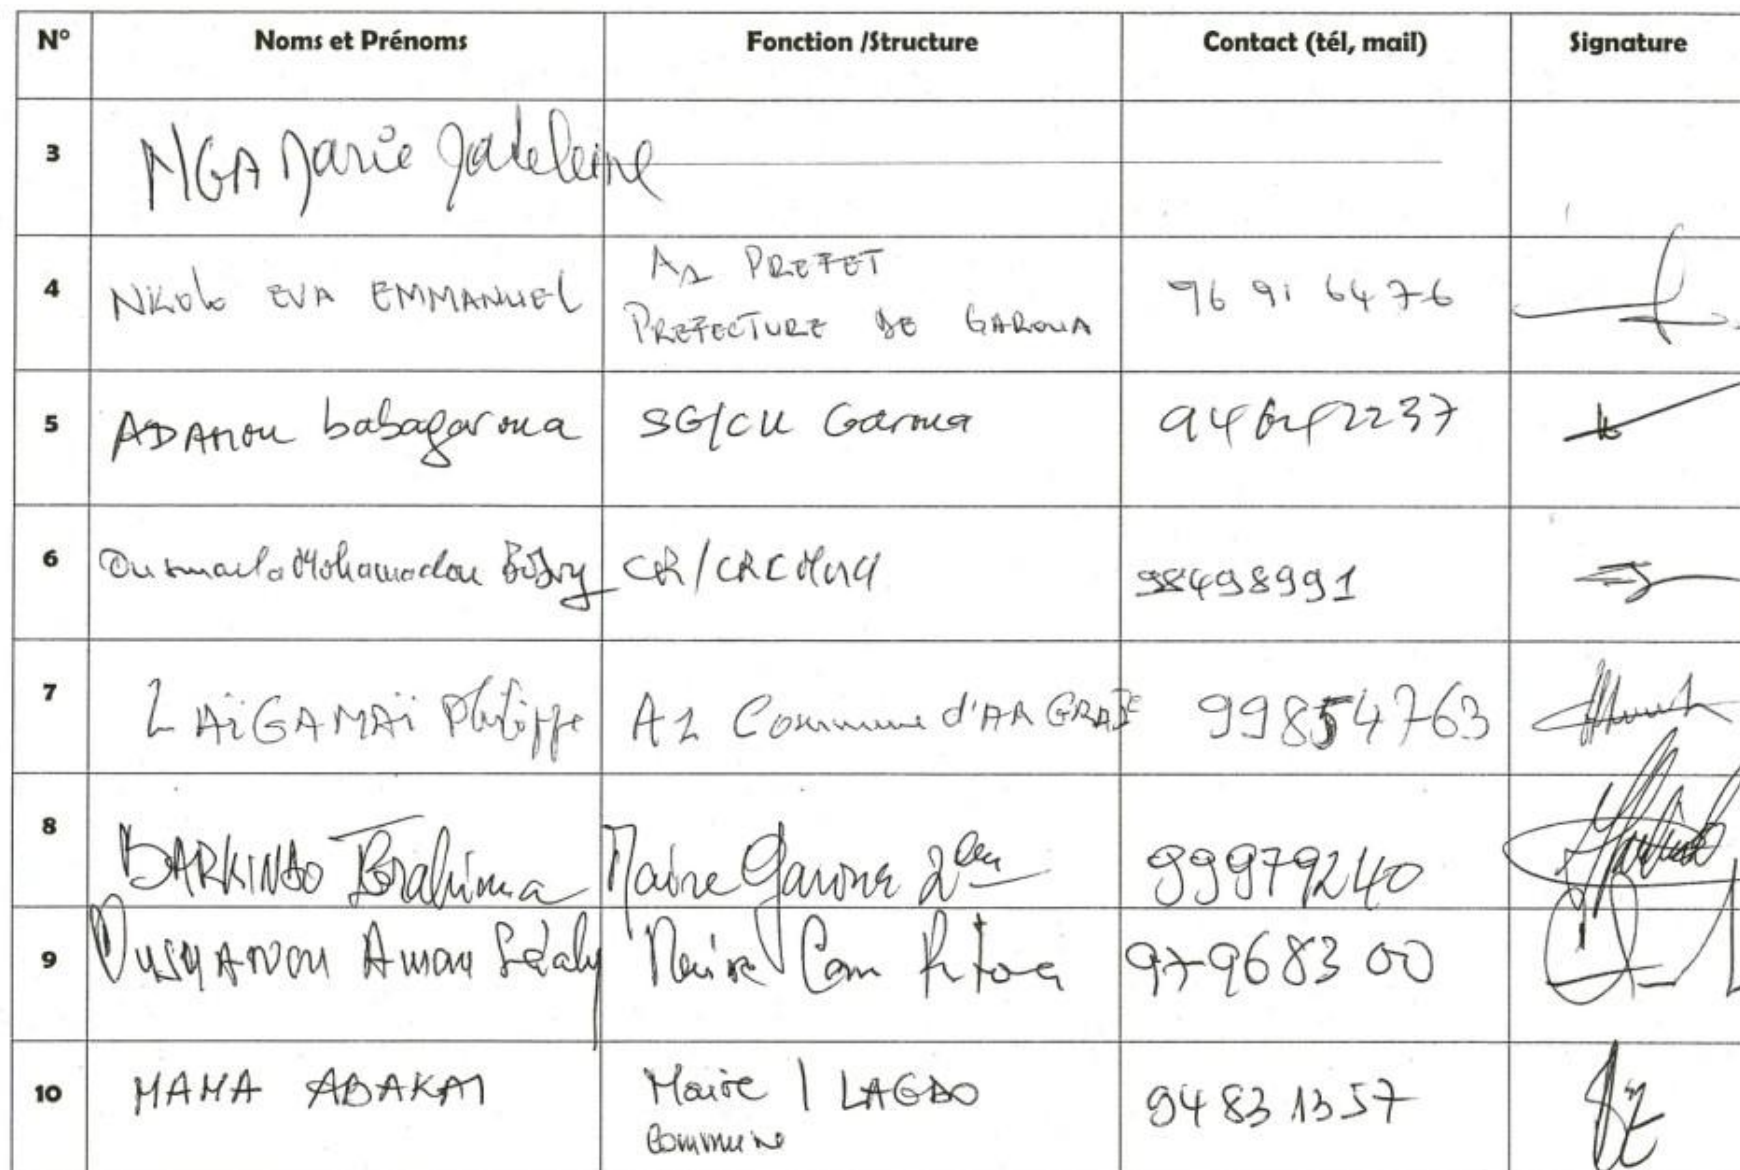 N° Noms et Prénoms Fonction /Structure Contact (tél, mail) Signature
3 NGA Marie Madeleine
4 EVA EMMANUEL A1 PREFET PREFECTURE DE GAROUA 96 91 6476
5 ADAMOU babagaroua SG/CU Garoua
6 Ousmaila Mohamadou CR/ 98498991
7 LAÏGAMAÏ Philippe A1 Commune d'AR 99854763
8 BARKINDO Ibrahima Maire Garoua 2em 99979240
9 OUSMANOU Amaou Maire Com Pitoa 979683 00
10 MAMA ABAKAI Maire / LAGDO 94 83 13 57
commune